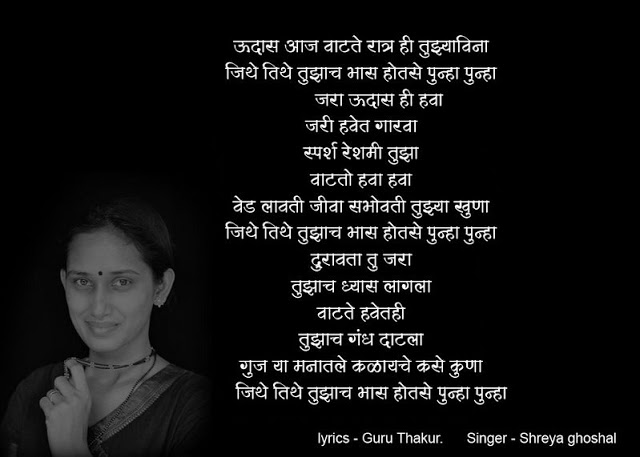 ऊदास आज वाटते रात्र ही तुझ्याविना
जिथे तिथे तुझाच भास होतसे पुन्हा पुन्हा
जरा ऊदास ही हवा
जरी हवेत गारवा
स्पर्श रेशमी तुझा
वाटतो हवा हवा
वेड लावती जीवा सभोवती तुझ्या खुणा
जिथे तिथे तुझाच भास होतसे पुन्हा पुन्हा
दुरावता तु जरा
तुझाच ध्यास लागला
वाटते हवेतही
तुझाच गंध दाटला
गुज या मनातले कळायचे कसे कुणा
जिथे तिथे तुझाच भास होतसे पुन्हा पुन्हा
lyrics - Guru Thakur. Singer - Shreya ghoshal